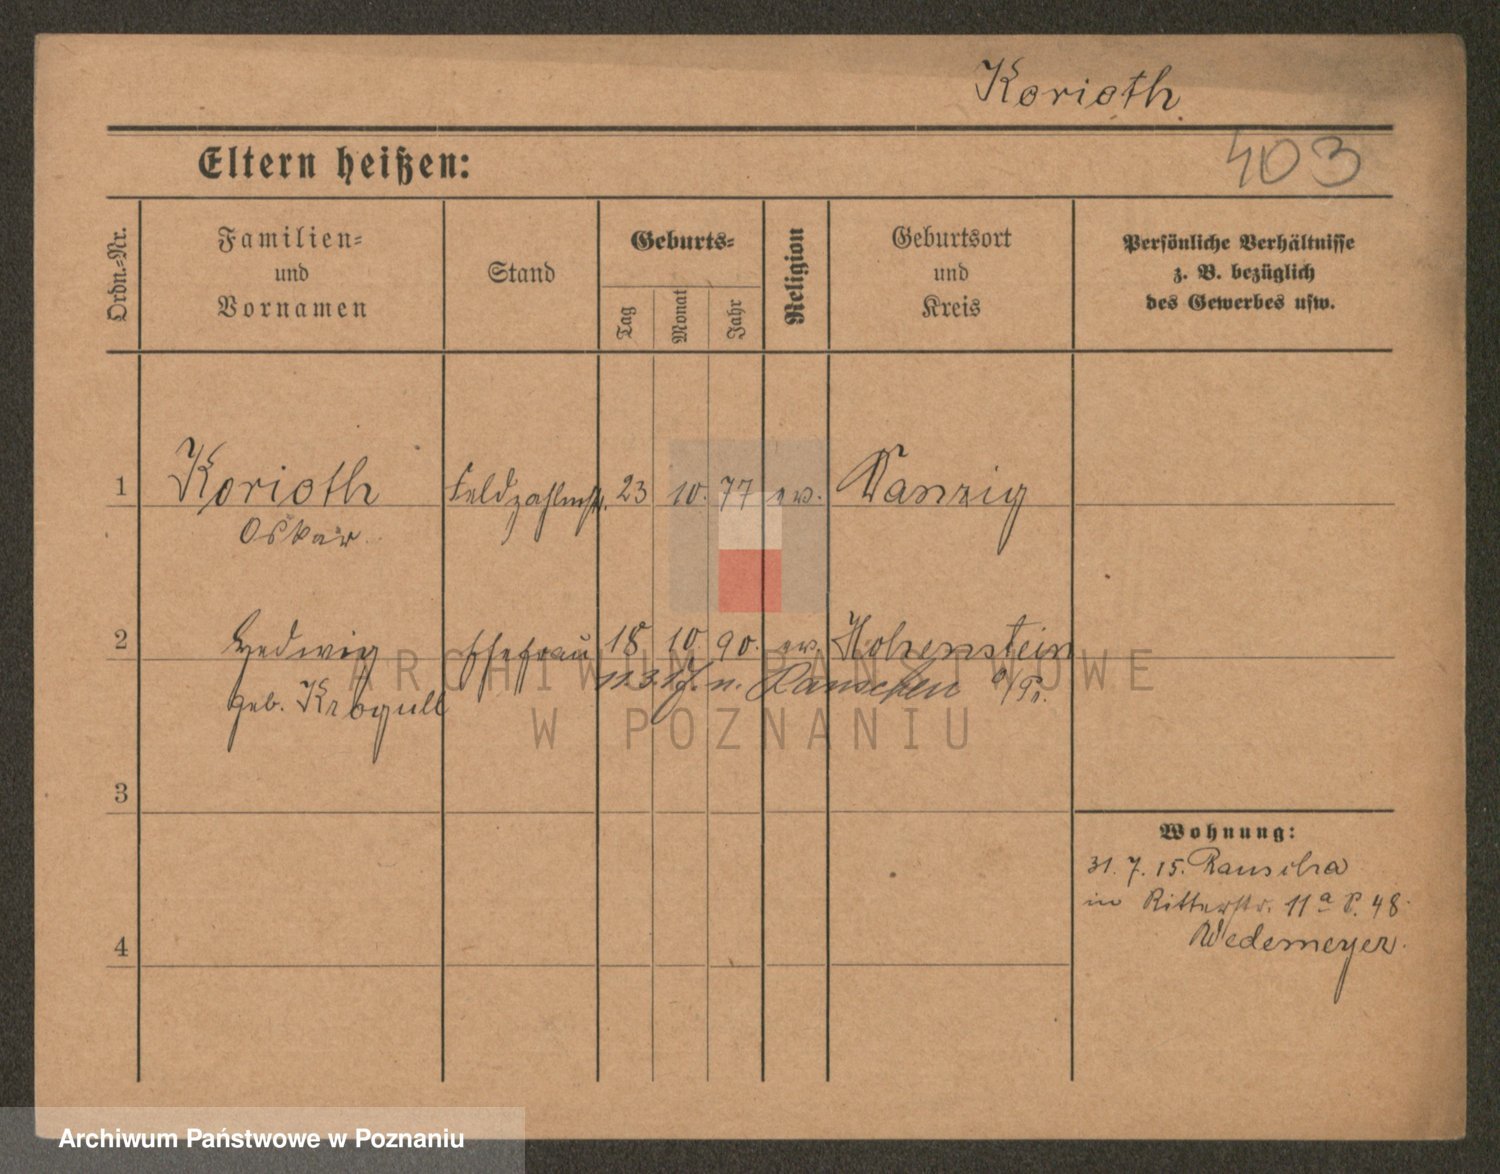 Korioth
403
Eltern heißen:
Ordn.-Nr.
Familien- und Vornamen
Stand
Geburts-
Tag
Monat
Jahr
Religion
Geburtsort und Kreis
Persönliche Verhältnisse
z. B. bezüglich
des Gewerbes usw.
1 Korioth Feldzahlmstr. 23 10. 77 ev. Danzig
Oskar
2 Hedwig Ehefrau 18 10. 90. ev. Hohenstein
11.3.17. n. Rauschen O/Pr.
geb. Krogull
3
Wohnung:
31. 7. 15.
in Ritterstr. 11a P. 48
4
Wedemeyer.
ARCHIWUM PAŃSTWOWE
W POZNANIU
Archiwum Państwowe w Poznaniu